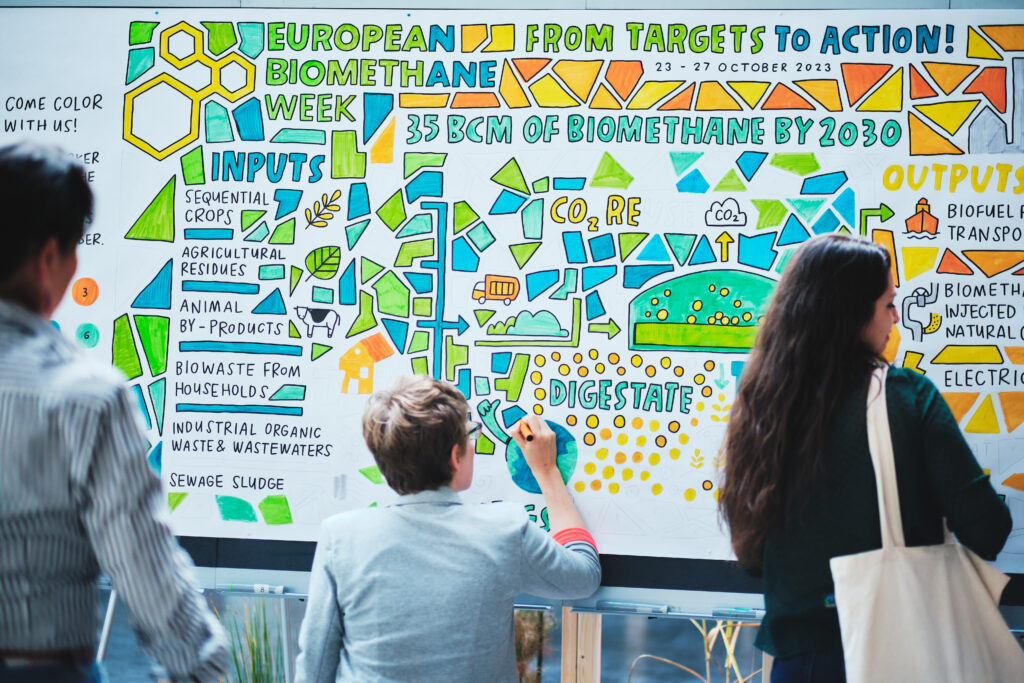 EUROPEAN
BIOMETHANE
WEEK
FROM TARGETS TO ACTION!
23 - 27 OCTOBER 2023
35 BCM OF BIOMETHANE BY 2030
COME COLOR
WITH US!
3
6
INPUTS
SEQUENTIAL
CROPS
AGRICULTURAL
RESIDUES
ANIMAL
BY-PRODUCTS
BIOWASTE FROM
HOUSEHOLDS
INDUSTRIAL ORGANIC
WASTE & WASTEWATERS
SEWAGE SLUDGE
CO2 RE
CO2
DIGESTATE
OUTPUTS
BIOFUEL
TRANSPO
BIOMETHA
INJECTED
NATURAL
ELECTRIC